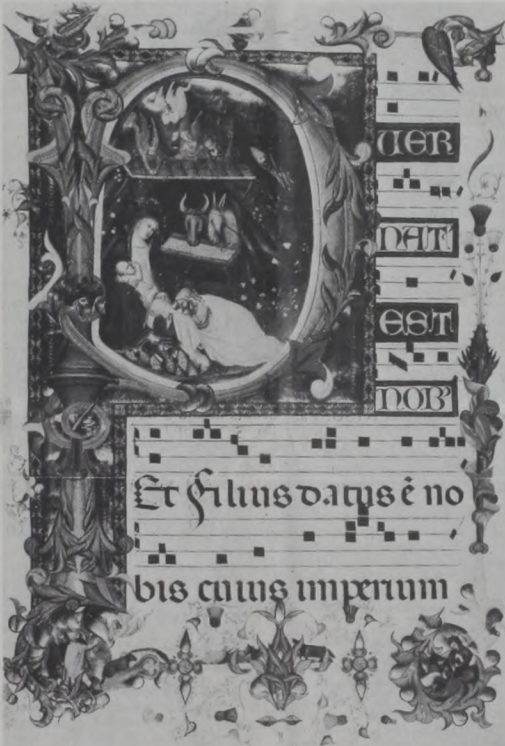 PUER
NAT'
EST
NOB'
Et filius datus ē no
bis cuius imperium